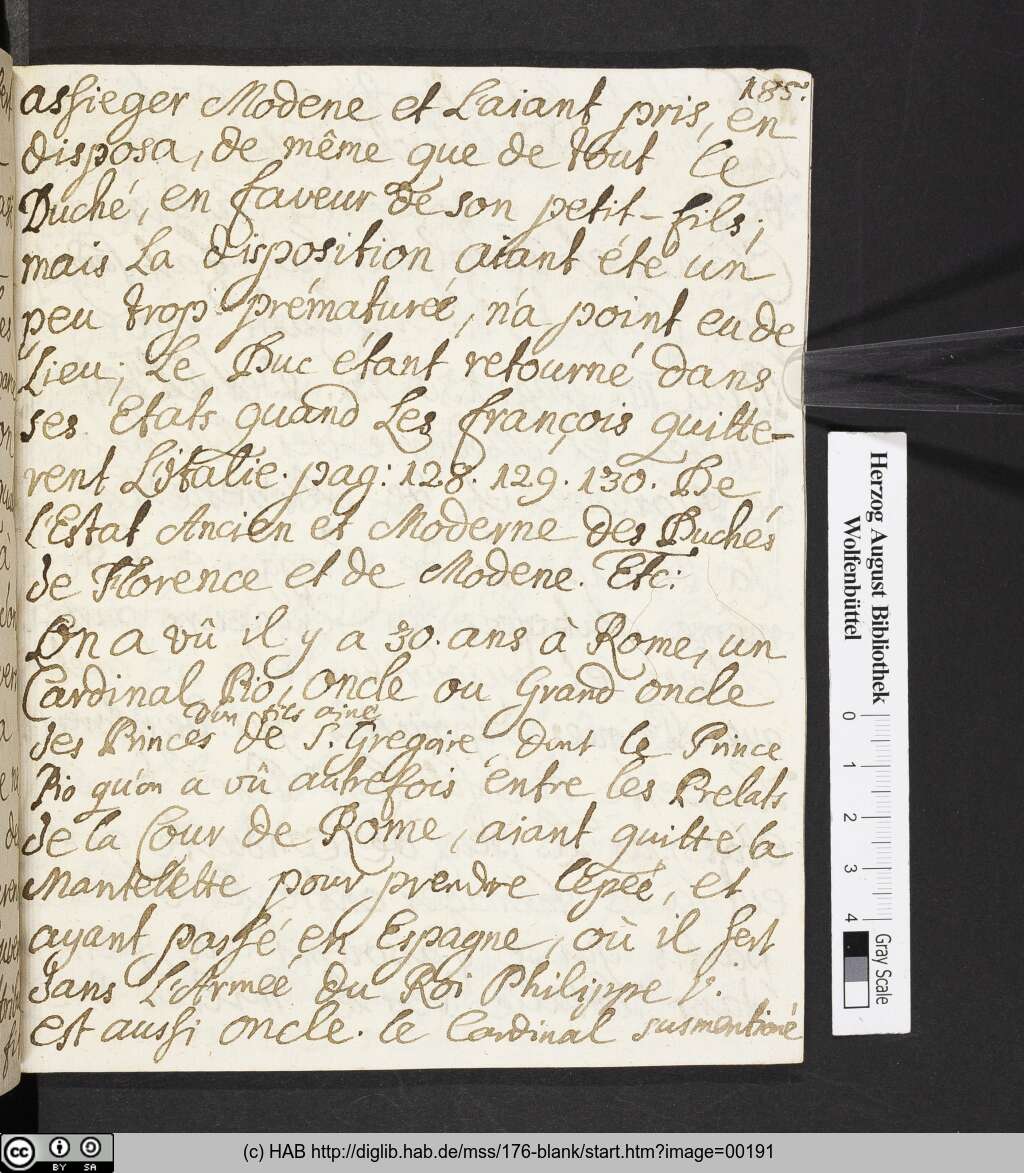 185.
assieger Modene et L'aiant pris, en
disposa, de même que de tout le
Duché, en faveur de son petit-fils;
mais La disposition aiant été un
peu trop prématureé, n'a point eu de
Lieu; Le Duc étant retourné dans
ses Etats quand Les françois quitte-
rent L'Italie. pag: 128. 129. 130. De
l'Estat Ancien et Moderne des Duchés
de Florence et de Modene. Etc:
On a vû il y a 30. ans à Rome, un
Cardinal Pio, oncle ou Grand oncle
d'un fils ainé
des Princes de S. Gregoire, dont le Prince
Pio qu'on a vû autrefois entre les Prelats
de la Cour de Rome, aiant quitté la
Mantelette pour prendre l'epeé, et
ayant passé en Espagne, où il sert
dans L'Armeé du Roi Philippe V.
est aussi oncle. le Cardinal susmentioné
Herzog August Bibliothek
Wolfenbüttel
0 1 2 3 4
Gray Scale
cc BY SA
(c) HAB http://diglib.hab.de/mss/176-blank/start.htm?image=00191